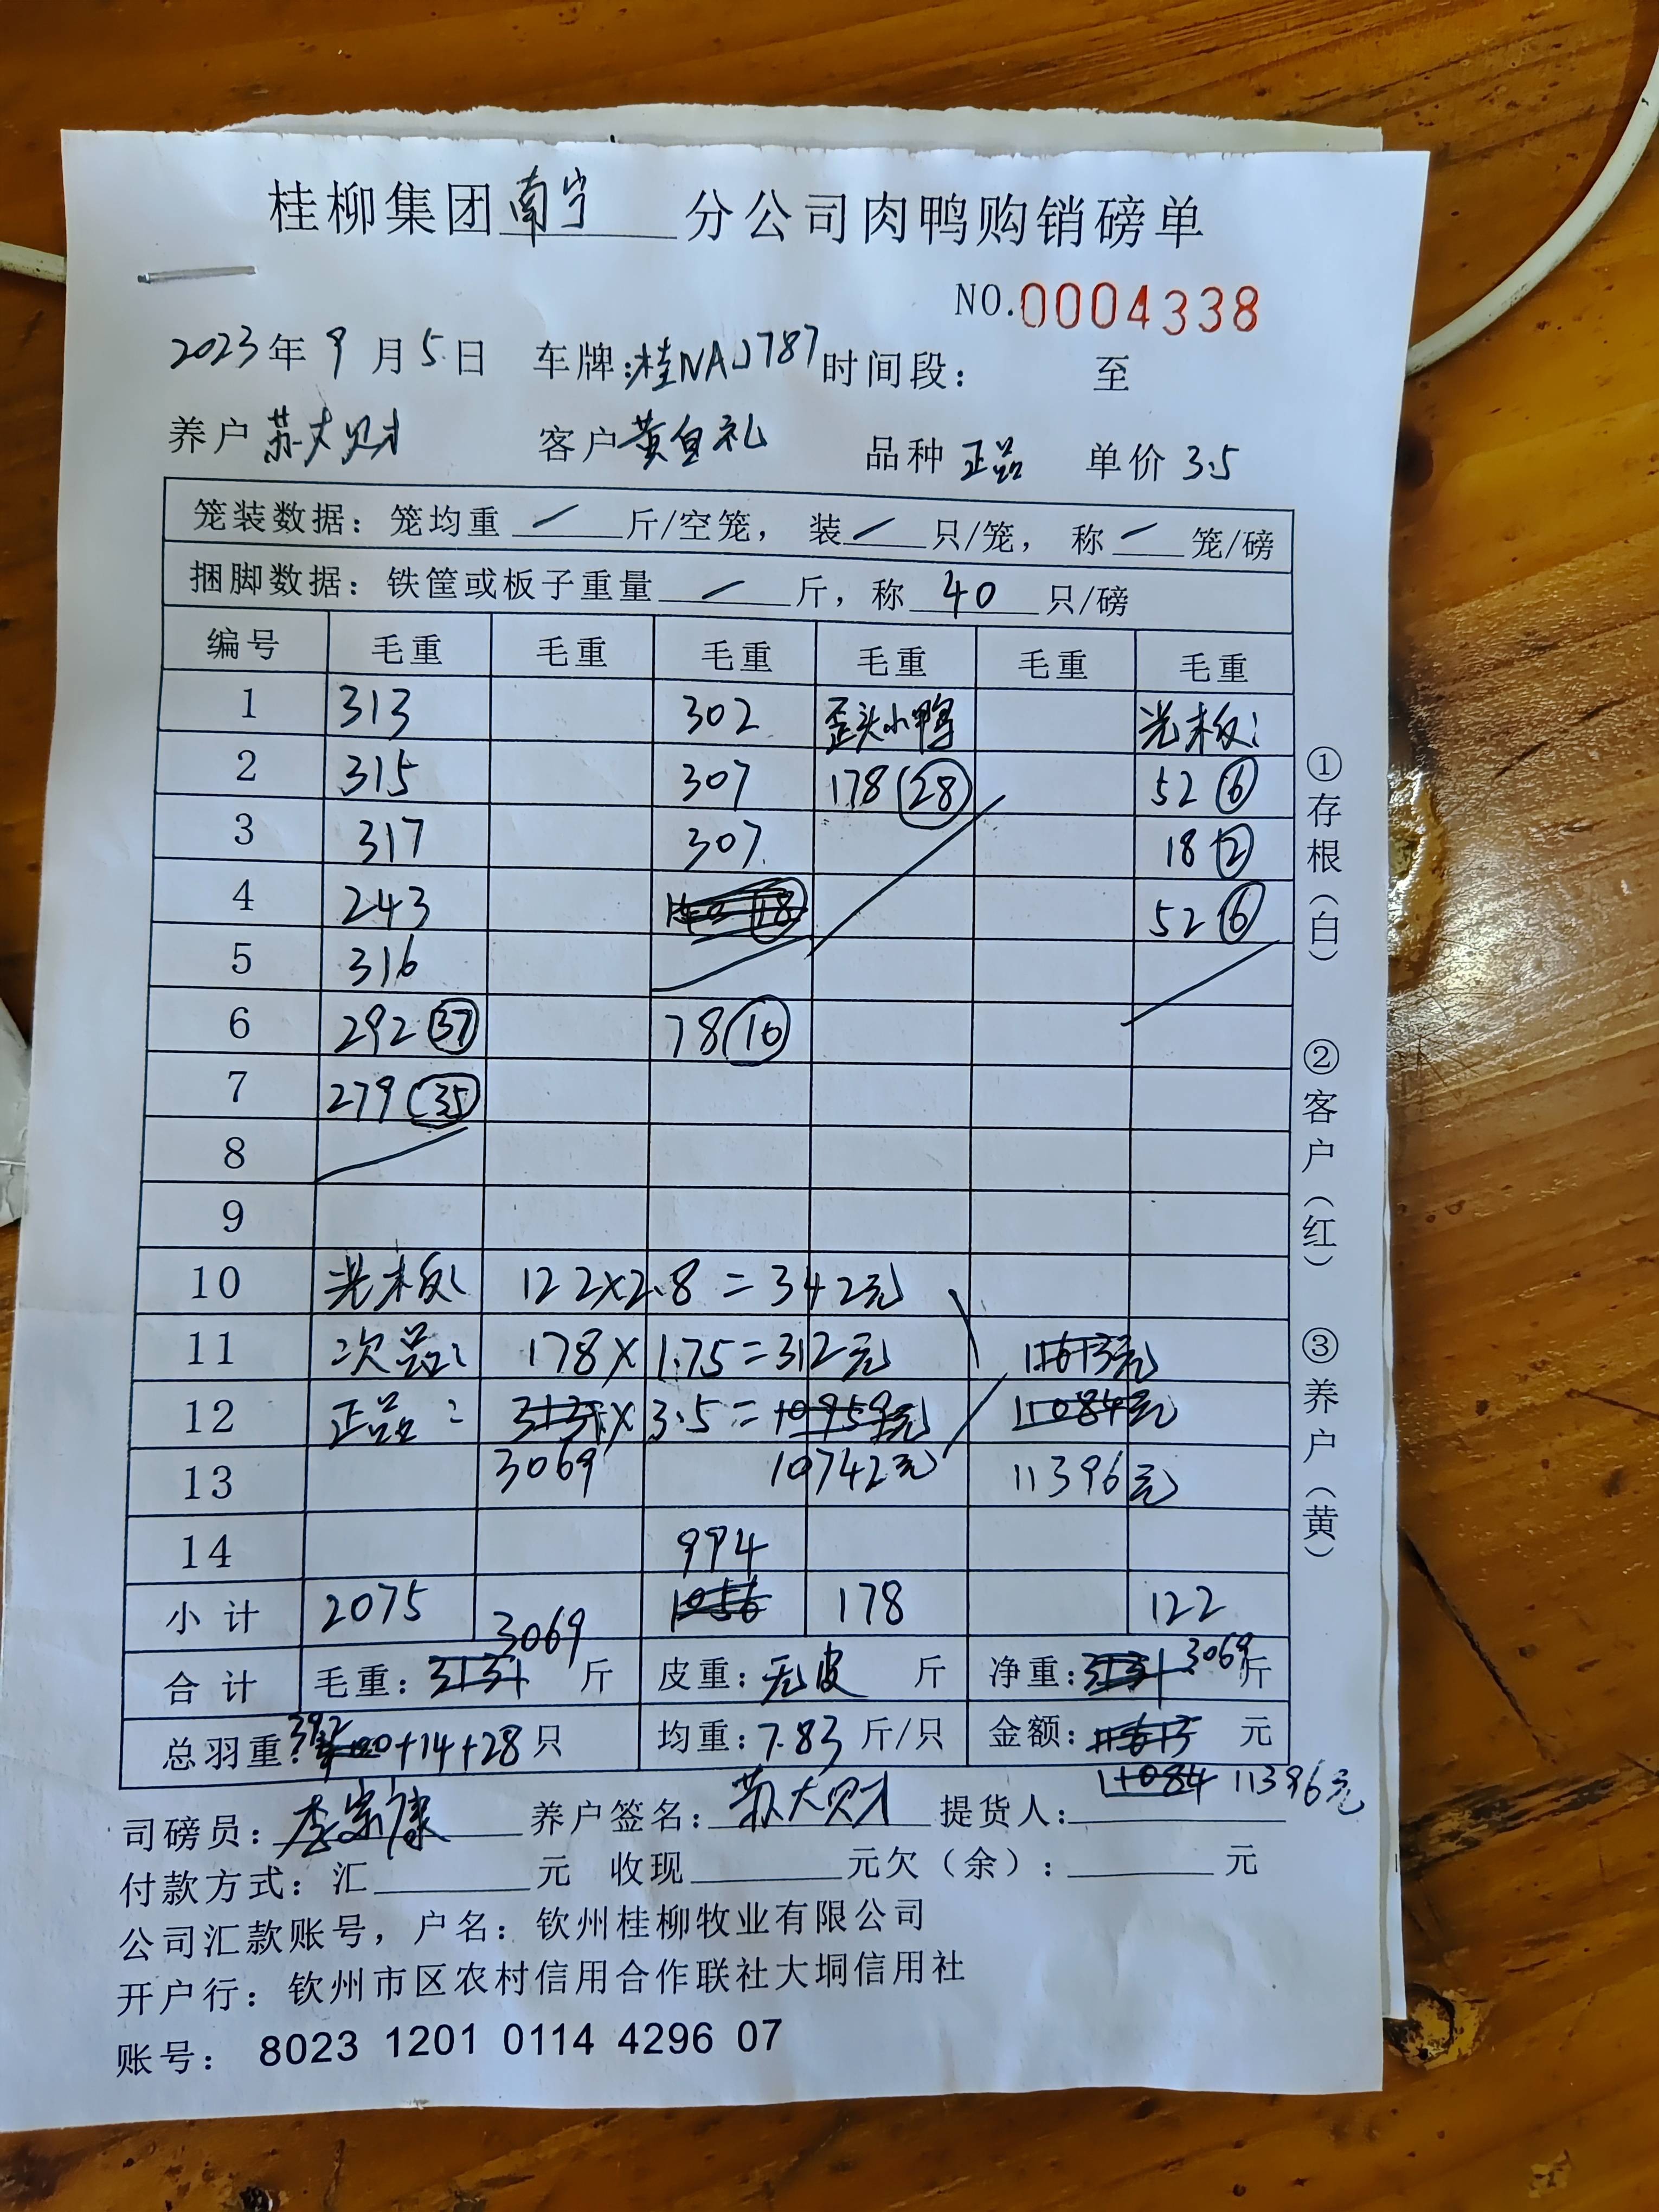 桂柳集团南宁分公司肉鸭购销磅单
NO.0004338
2023年9月5日 车牌:桂NAJ787 时间段: 至
养户 苏大财 客户 黄自礼 品种 正品 单价 3.5
笼装数据: 笼均重 / 斤/空笼, 装 / 只/笼, 称 / 笼/磅
捆脚数据: 铁筐或板子重量 / 斤, 称 40 只/磅
编号 毛重 毛重 毛重 毛重 毛重 毛重
1 313 302 歪头小鸭 光板:
2 315 307 178 (28) 52 (6)
3 317 307 18 (2)
4 243 52 (6)
5 316
6 292 (37) 78 (10)
7 279 (35)
8
9
10 光板: 122×2.8=342元
11 次品: 178×1.75=312元 11613元
12 正品: 3131×3.5=10959元 11084元
13 3069 10742元 11396元
14 994
小计 2075 1056 178 122
3069
合计 毛重: 3131 斤 皮重: 无皮 斤 净重: 3131 3069 斤
总羽重: 392+14+28只 均重: 7.83 斤/只 金额: 11613 元
11084 11396元
司磅员: 李宗康 养户签名: 苏大财 提货人:
付款方式: 汇 元 收现 元欠(余): 元
公司汇款账号, 户名: 钦州桂柳牧业有限公司
开户行: 钦州市区农村信用合作联社大垌信用社
账号: 8023 1201 0114 4296 07
①存根(白) ②客户(红) ③养户(黄)